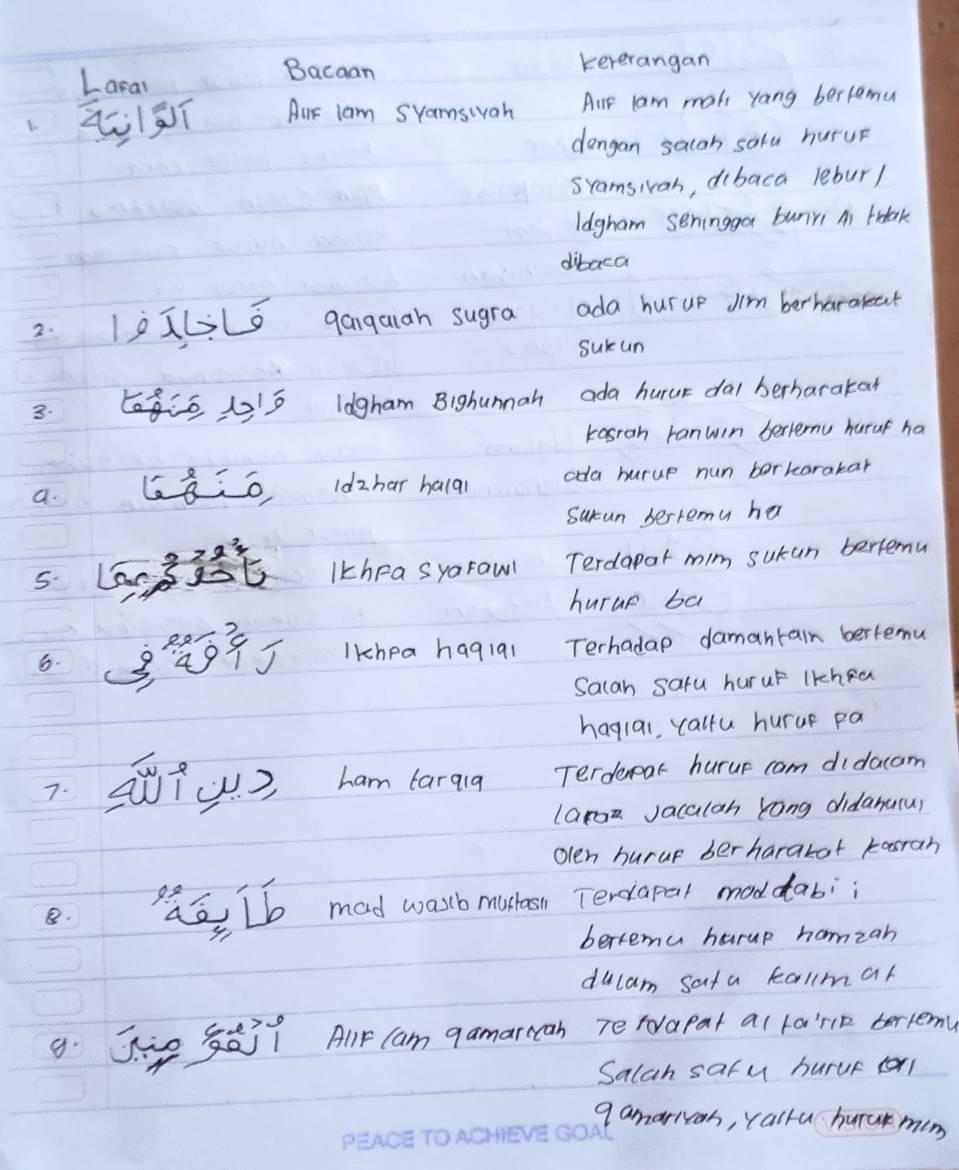 Lafal Bacaan keterangan
1. الزَّانِيَةُ Alif lam syamsiyah Alif lam mati yang bertemu
dengan salah satu huruf
syamsiyah, dibaca lebur/
Idgham sehingga bunyi Al tidak
dibaca
2. فَاجْلِدُوا qalqalah sugra ada huruf Jim berharakat
sukun
3. وَاحِدٍ مِّنْهُمَا Idgham Bighunnah ada huruf dal berharakat
kasrah tanwin bertemu huruf ha
4. مِنْهُمَا Idzhar halqi ada huruf nun berharakat
sukun bertemu ha
5. تَأْخُذْكُمْ بِهِمَا Ikhfa syafawi Terdapat mim sukun bertemu
huruf ba
6. رَأْفَةٌ فِي Ikhfa haqiqi Terhadap damantain bertemu
Salah satu huruf Ikhfa
haqiqi, yaitu huruf fa
7. دِينِ اللَّهِ ham tarqiq Terdapat huruf lam didalam
lafaz Jalalah yang didahului
oleh huruf berharakat kasrah
8. طَائِفَةٌ mad wajib muttasil Terdapat mad tabi i
bertemu huruf hamzah
dalam satu kalimat
9. الْمُؤْمِنِينَ Alif lam qamariyah Terdapat al ta'rif bertemu
Salah satu huruf
qamariyah, yaitu huruf mim
PEACE TO ACHIEVE GOAL